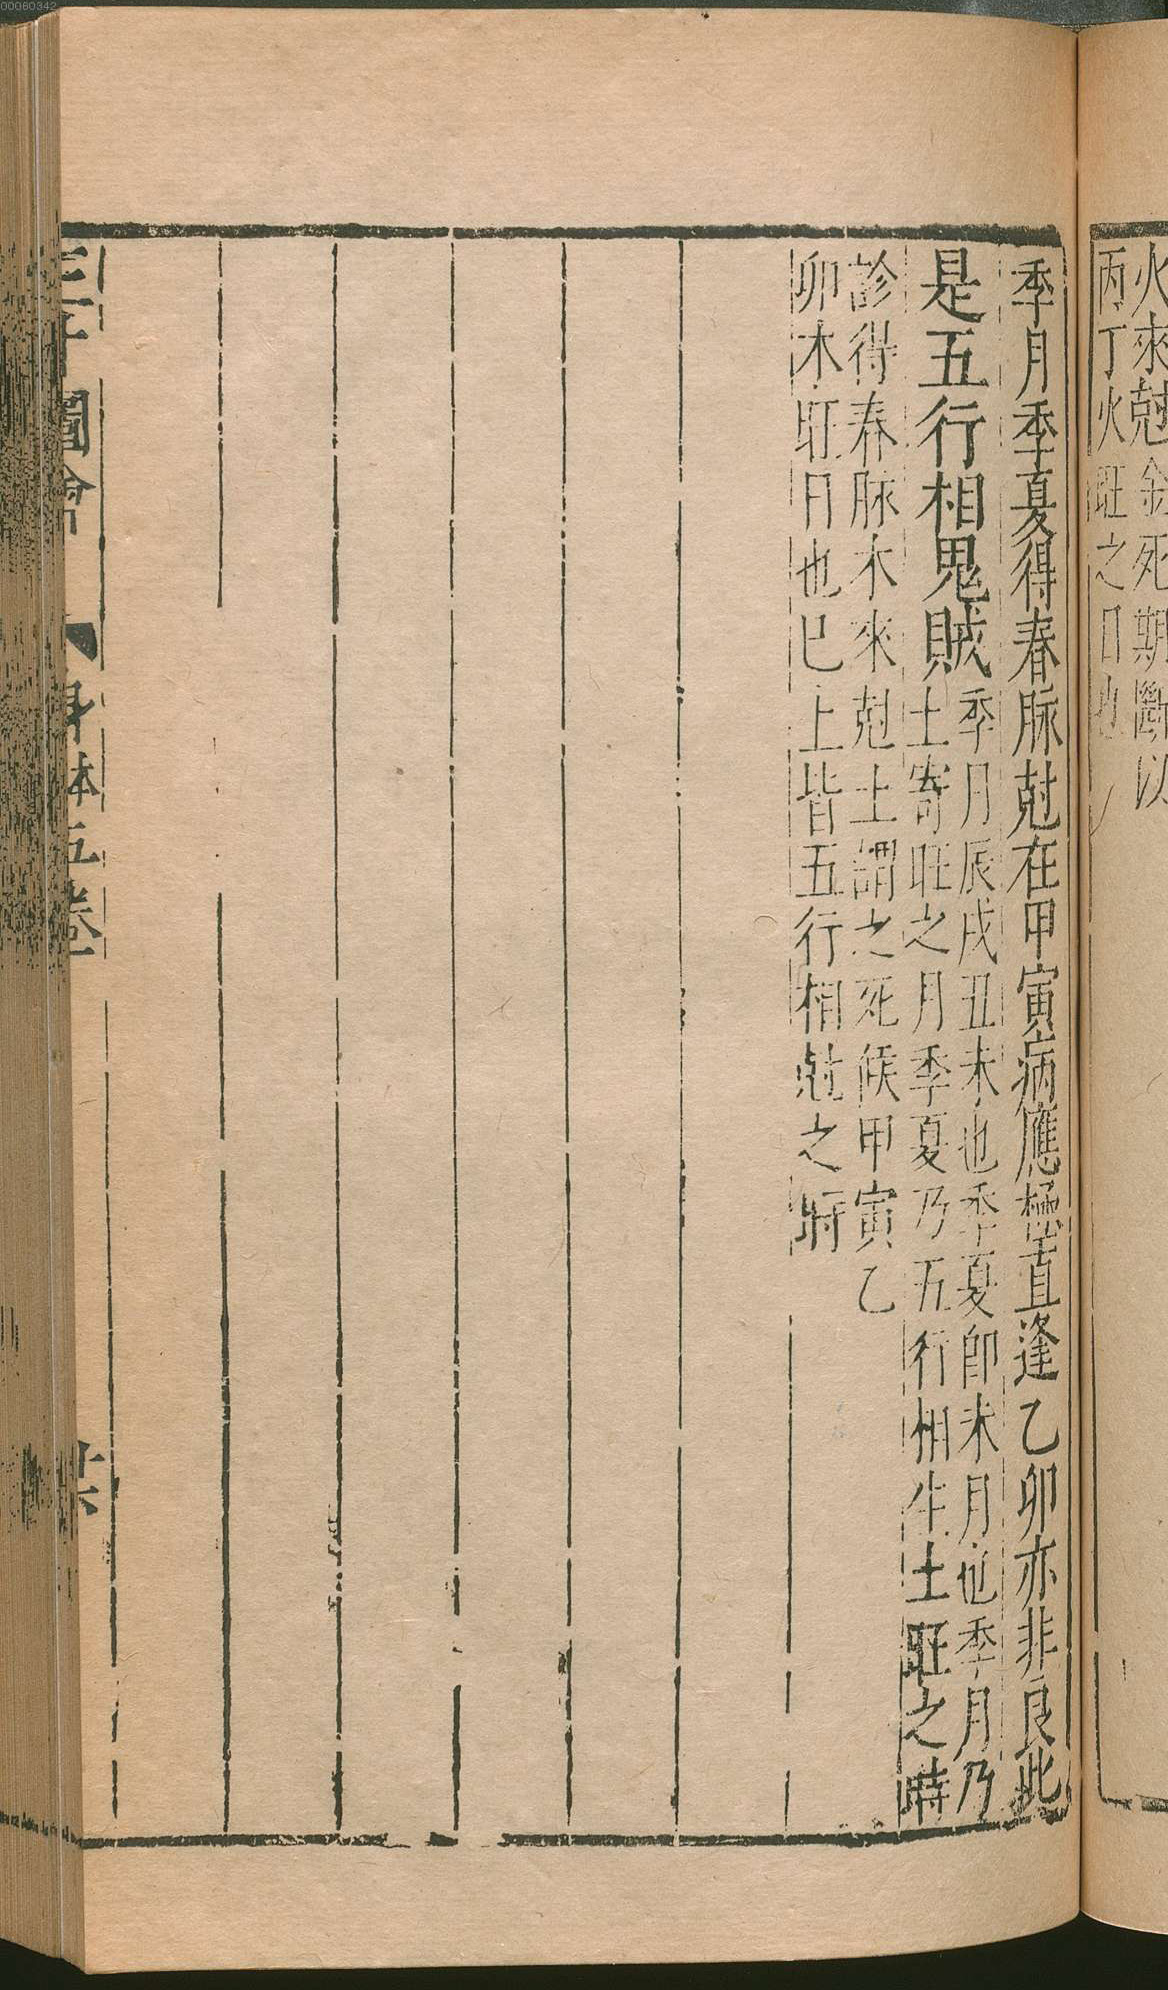 火來尅金死期斷以
丙丁火旺之日也
季月季夏得春脉尅在甲寅病應極直逢乙卯亦非良此
是五行相鬼賊
季月辰戌丑未也季夏即未月也季月乃
土寄旺之月季夏乃五行相生土旺之時
診得春脉木來尅土謂之死候甲寅乙
卯木旺日也巳上皆五行相尅之時
三才圖會
身体五卷
00060342